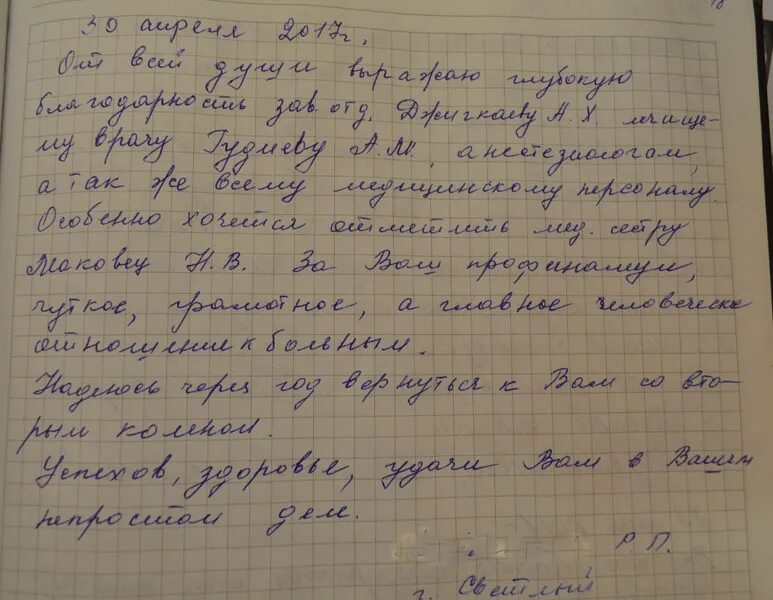 30 апреля 2017г.
От всей души выражаю глубокую
благодарность зав. отд. Джигкаеву А. Х. лечаще-
му врачу Гудиеву А. М., анестезиологам,
а так же всему медицинскому персоналу.
Особенно хочется отметить мед. сестру
Маковец Н. В. За Ваш
чуткое, грамотное, а главное человеческо
отношение к больным.
Надеюсь через год вернуться к Вам со вто-
рым коленом.
Успехов, здоровье, удачи Вам в Вашем
непростом деле.
Р. П.
г. Светлый